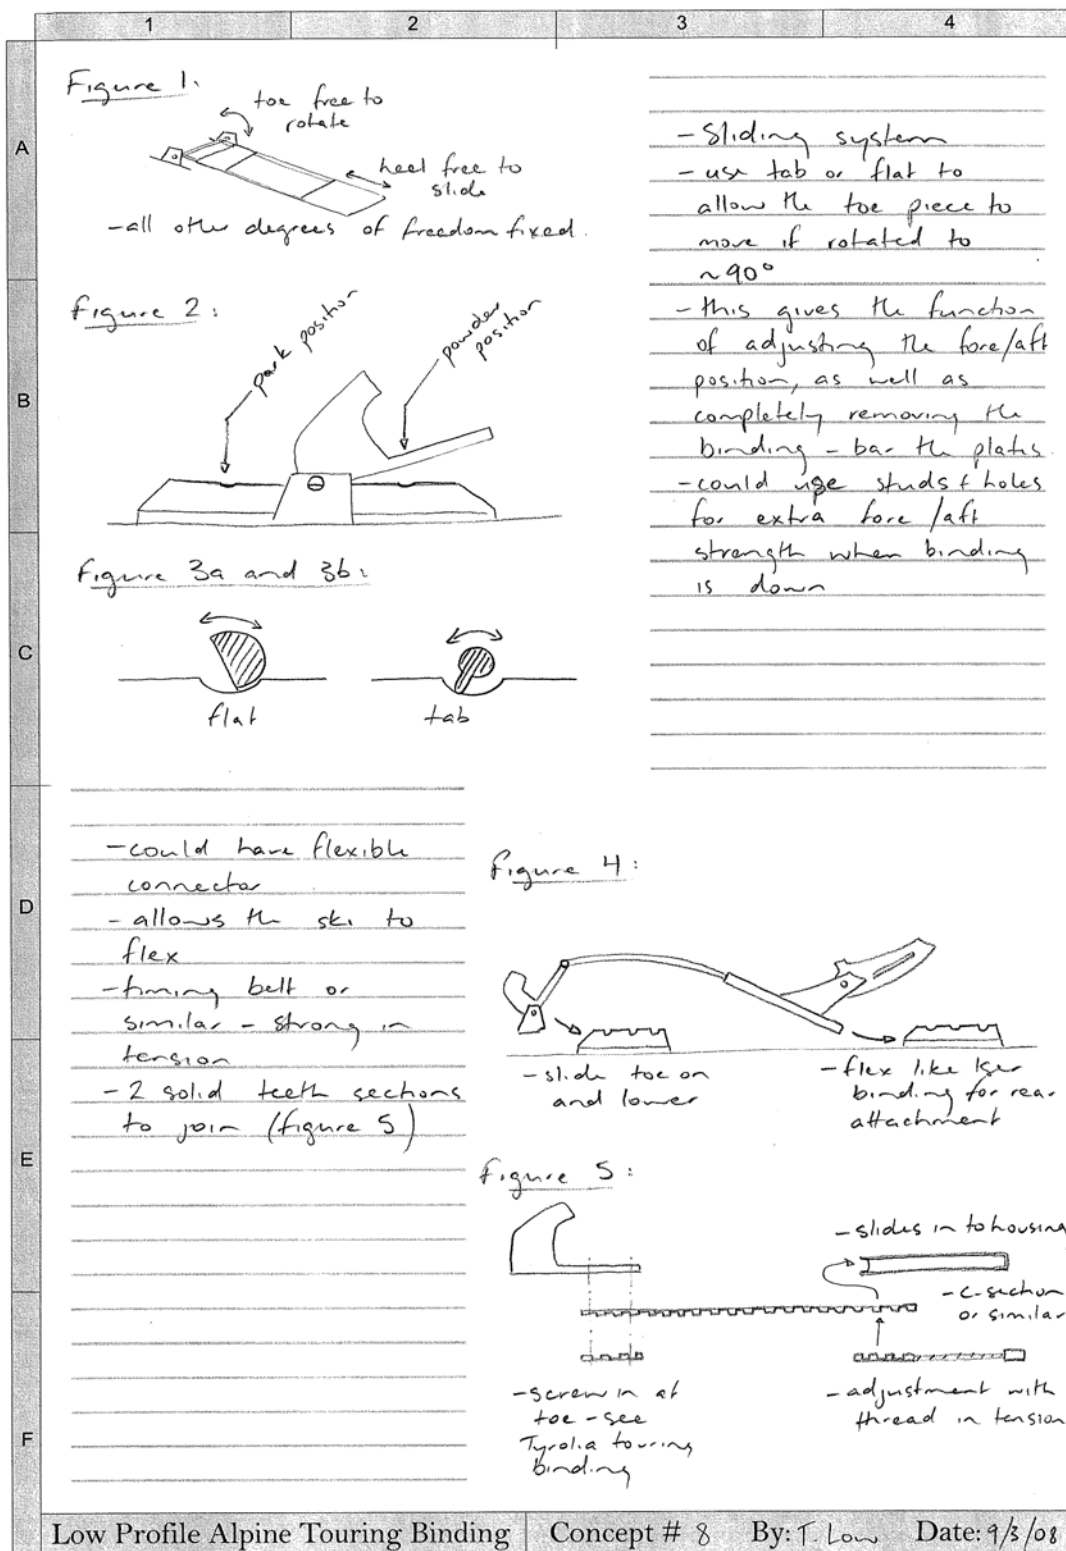 1 2 3 4
A
B
C
D
E
F
Figure 1.
toe free to
rotate
heel free to
slide
-all other degrees of freedom fixed.
Figure 2:
park position
powder
position
Figure 3a and 3b:
flat
tab
-Sliding system
-use tab or flat to
allow the toe piece to
move if rotated to
~90°
-this gives the function
of adjusting the fore/aft
position, as well as
completely removing the
binding - bar the plates.
-could use studs + holes
for extra fore/aft
strength when binding
is down
-could have flexible
connector
-allows the ski to
flex
-timing belt or
similar - strong in
tension
-2 solid teeth sections
to join (figure 5)
Figure 4:
-slide toe on
and lower
-flex like
binding for rear
attachment
Figure 5:
-slides in to housing
-c-section
or similar
-screw in at
toe - see
Tyrolia touring
binding
-adjustment with
thread in tension
Low Profile Alpine Touring Binding Concept # 8 By: T. Low Date: 9/3/08